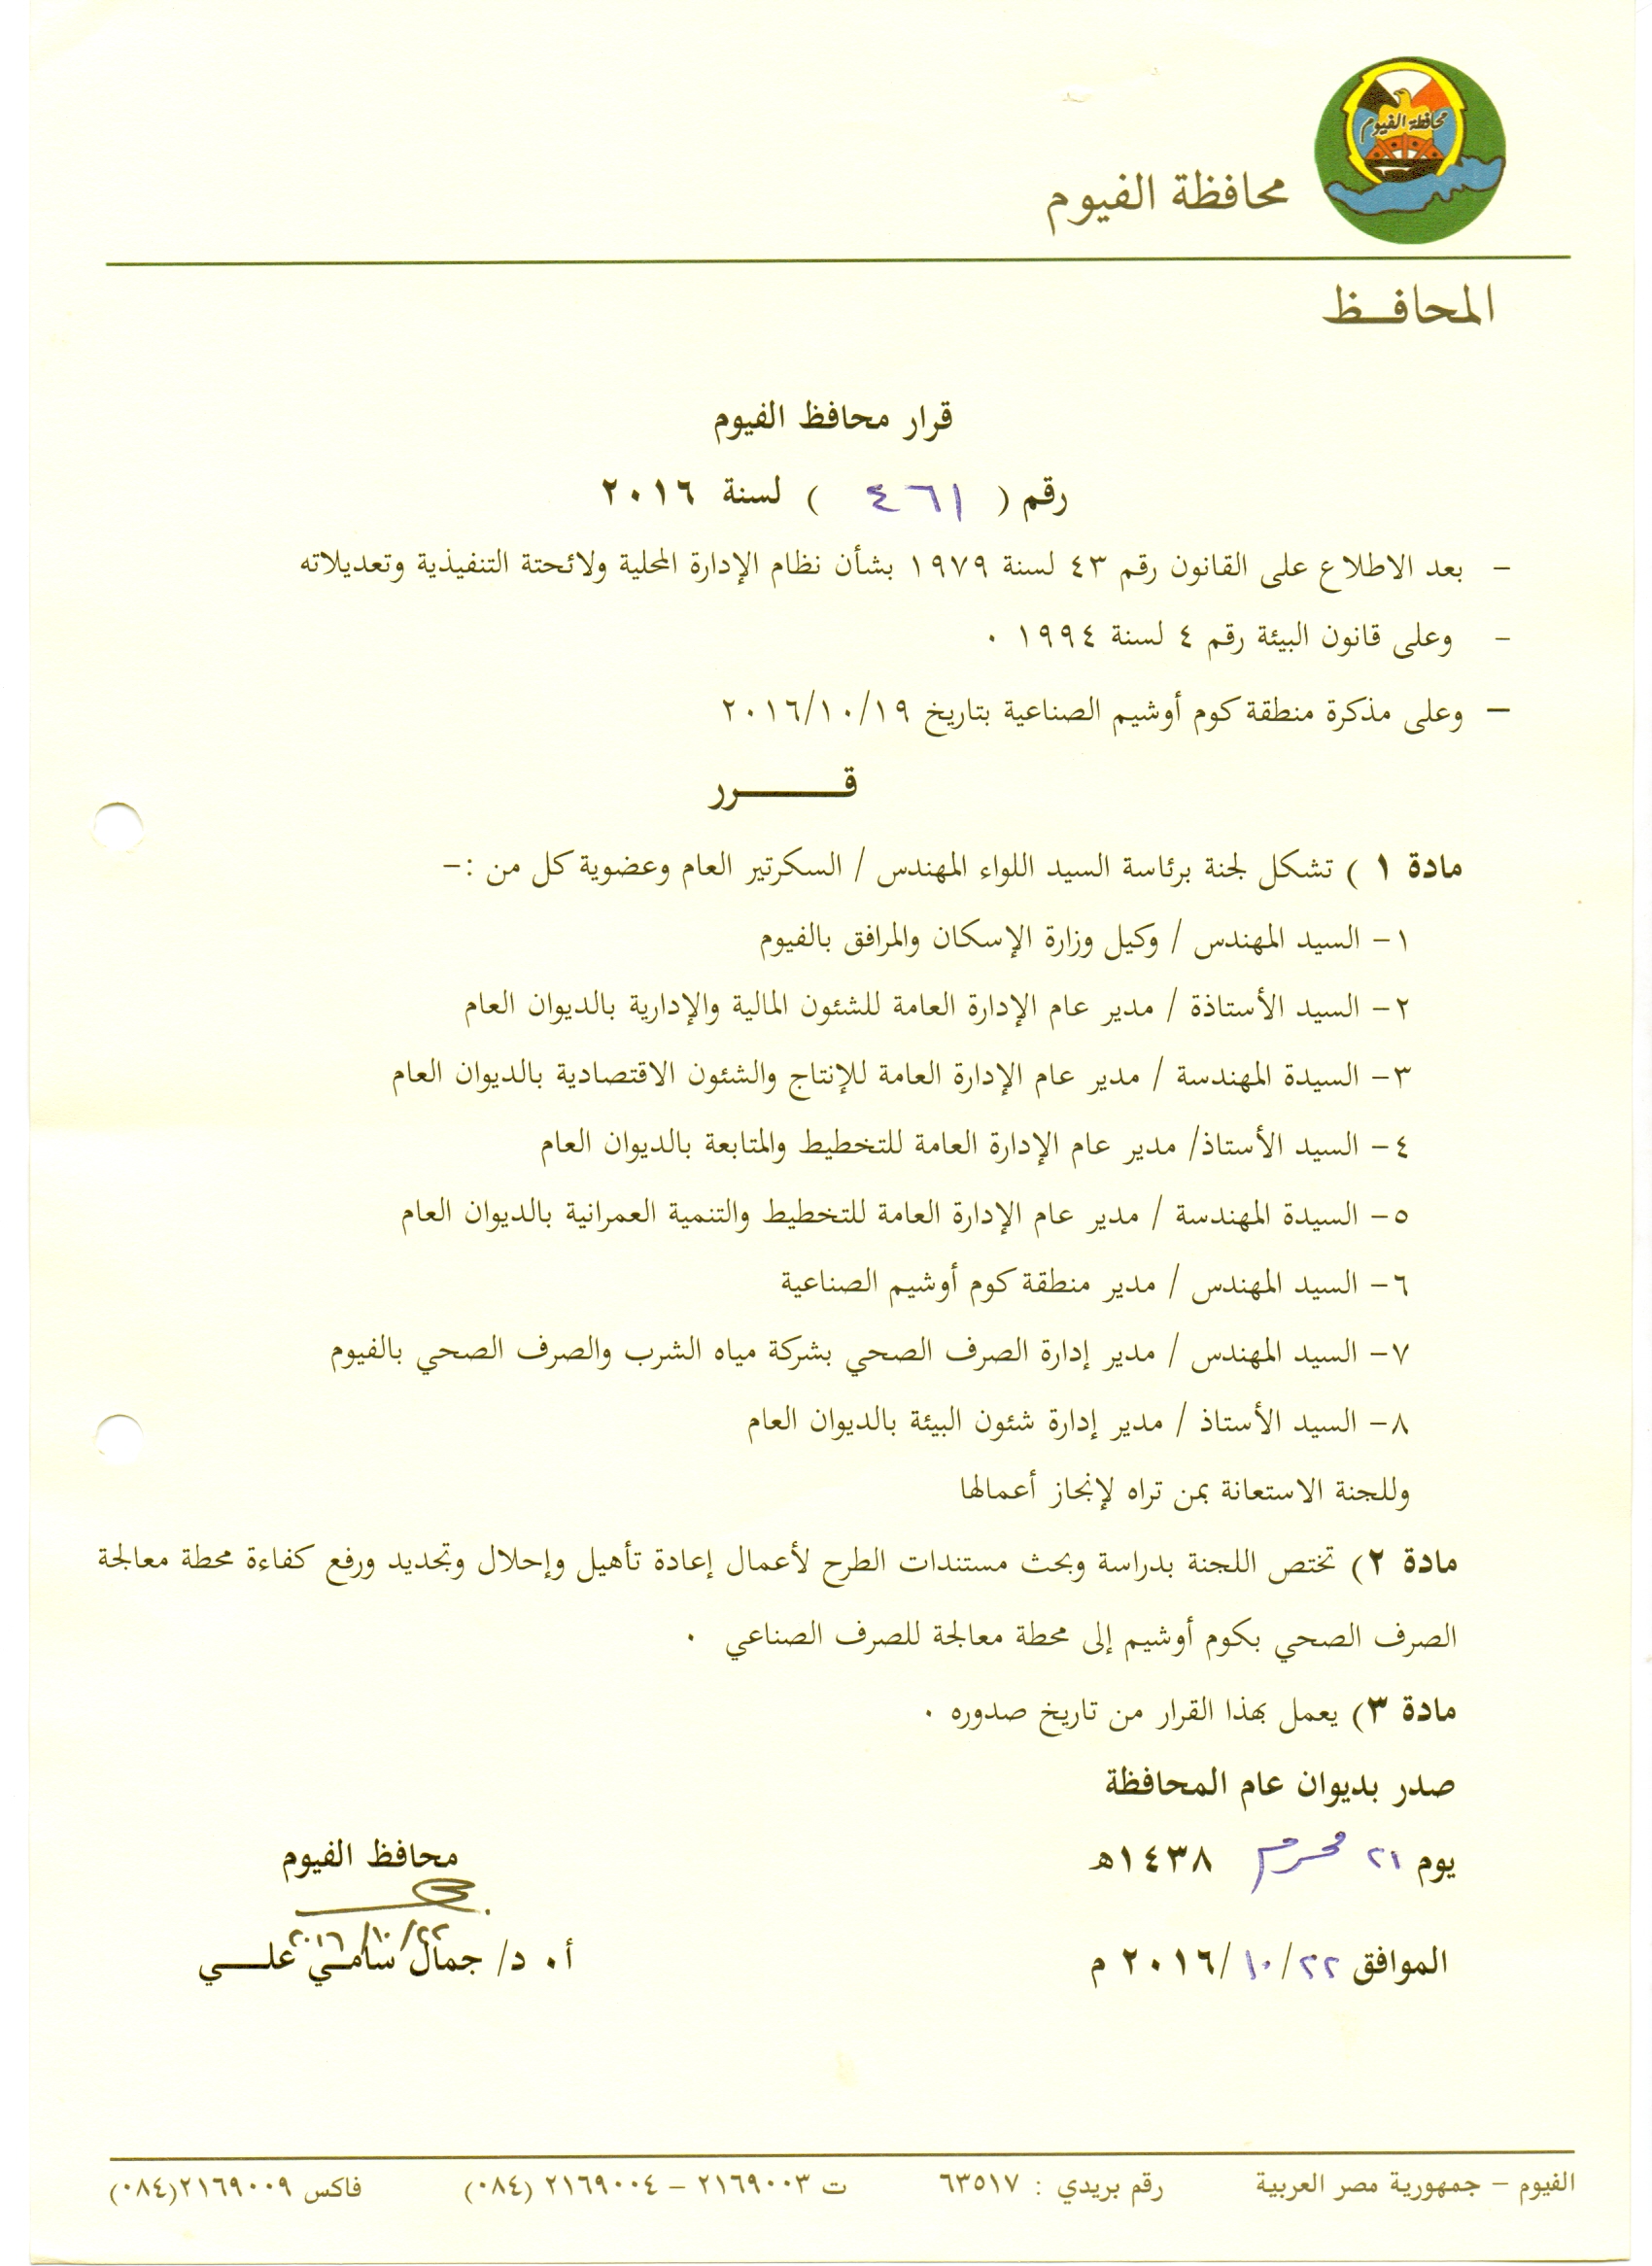 محافظة الفيوم
محافظة الفيوم
المحافـــظ
قرار محافظ الفيوم
رقم ( ٤٦١ ) لسنة ٢٠١٦
– بعد الاطلاع على القانون رقم ٤٣ لسنة ١٩٧٩ بشأن نظام الإدارة المحلية ولائحتة التنفيذية وتعديلاته
- وعلى قانون البيئة رقم ٤ لسنة ١٩٩٤ ٠
– وعلى مذكرة منطقة كوم أوشيم الصناعية بتاريخ ٢٠١٦/١٠/١٩
قـــــــرر
مادة ١ ) تشكل لجنة برئاسة السيد اللواء المهندس / السكرتير العام وعضوية كل من :–
١– السيد المهندس / وكيل وزارة الإسكان والمرافق بالفيوم
٢– السيد الأستاذة / مدير عام الإدارة العامة للشئون المالية والإدارية بالديوان العام
٣– السيدة المهندسة / مدير عام الإدارة العامة للإنتاج والشئون الاقتصادية بالديوان العام
٤– السيد الأستاذ/ مدير عام الإدارة العامة للتخطيط والمتابعة بالديوان العام
٥– السيدة المهندسة / مدير عام الإدارة العامة للتخطيط والتنمية العمرانية بالديوان العام
٦– السيد المهندس / مدير منطقة كوم أوشيم الصناعية
٧– السيد المهندس / مدير إدارة الصرف الصحي بشركة مياه الشرب والصرف الصحي بالفيوم
٨– السيد الأستاذ / مدير إدارة شئون البيئة بالديوان العام
وللجنة الاستعانة بمن تراه لإنجاز أعمالها
مادة ٢) تختص اللجنة بدراسة وبحث مستندات الطرح لأعمال إعادة تأهيل وإحلال وتجديد ورفع كفاءة محطة معالجة
الصرف الصحي بكوم أوشيم إلى محطة معالجة للصرف الصناعي ٠
مادة ٣) يعمل بهذا القرار من تاريخ صدوره ٠
صدر بديوان عام المحافظة
يوم ٢١ محرم ١٤٣٨هـ
الموافق ٢٢/١٠/٢٠١٦ م
محافظ الفيوم
٢٢/١٠/٢٠١٦
أ٠ د/ جمال سامـي علـــي
الفيوم – جمهورية مصر العربية رقم بريدي : ٦٣٥١٧ ت ٢١٦٩٠٠٣ – ٢١٦٩٠٠٤ (٠٨٤) فاكس ٢١٦٩٠٠٩(٠٨٤)